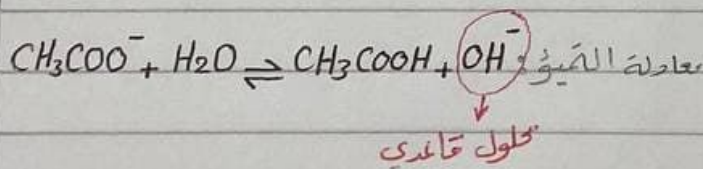 معادلة التميؤ: CH₃COO⁻ + H₂O ⇌ CH₃COOH + OH⁻
محلول قاعدي